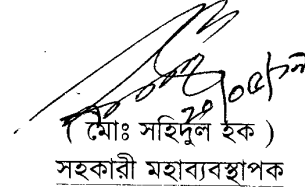 ( মোঃ সহিদুল হক )
সহকারী মহাব্যবস্থাপক